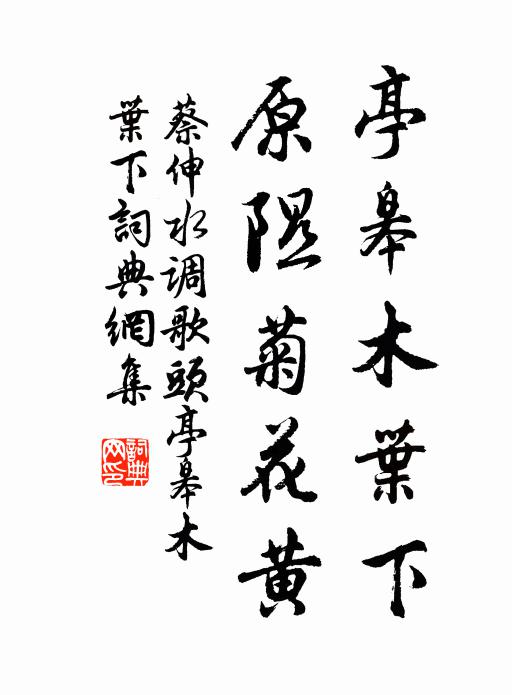 亭皋木葉下
原隰菊花黃
蔡伸水调歌頭亭皋木
葉下詞典網集
詞典
网印